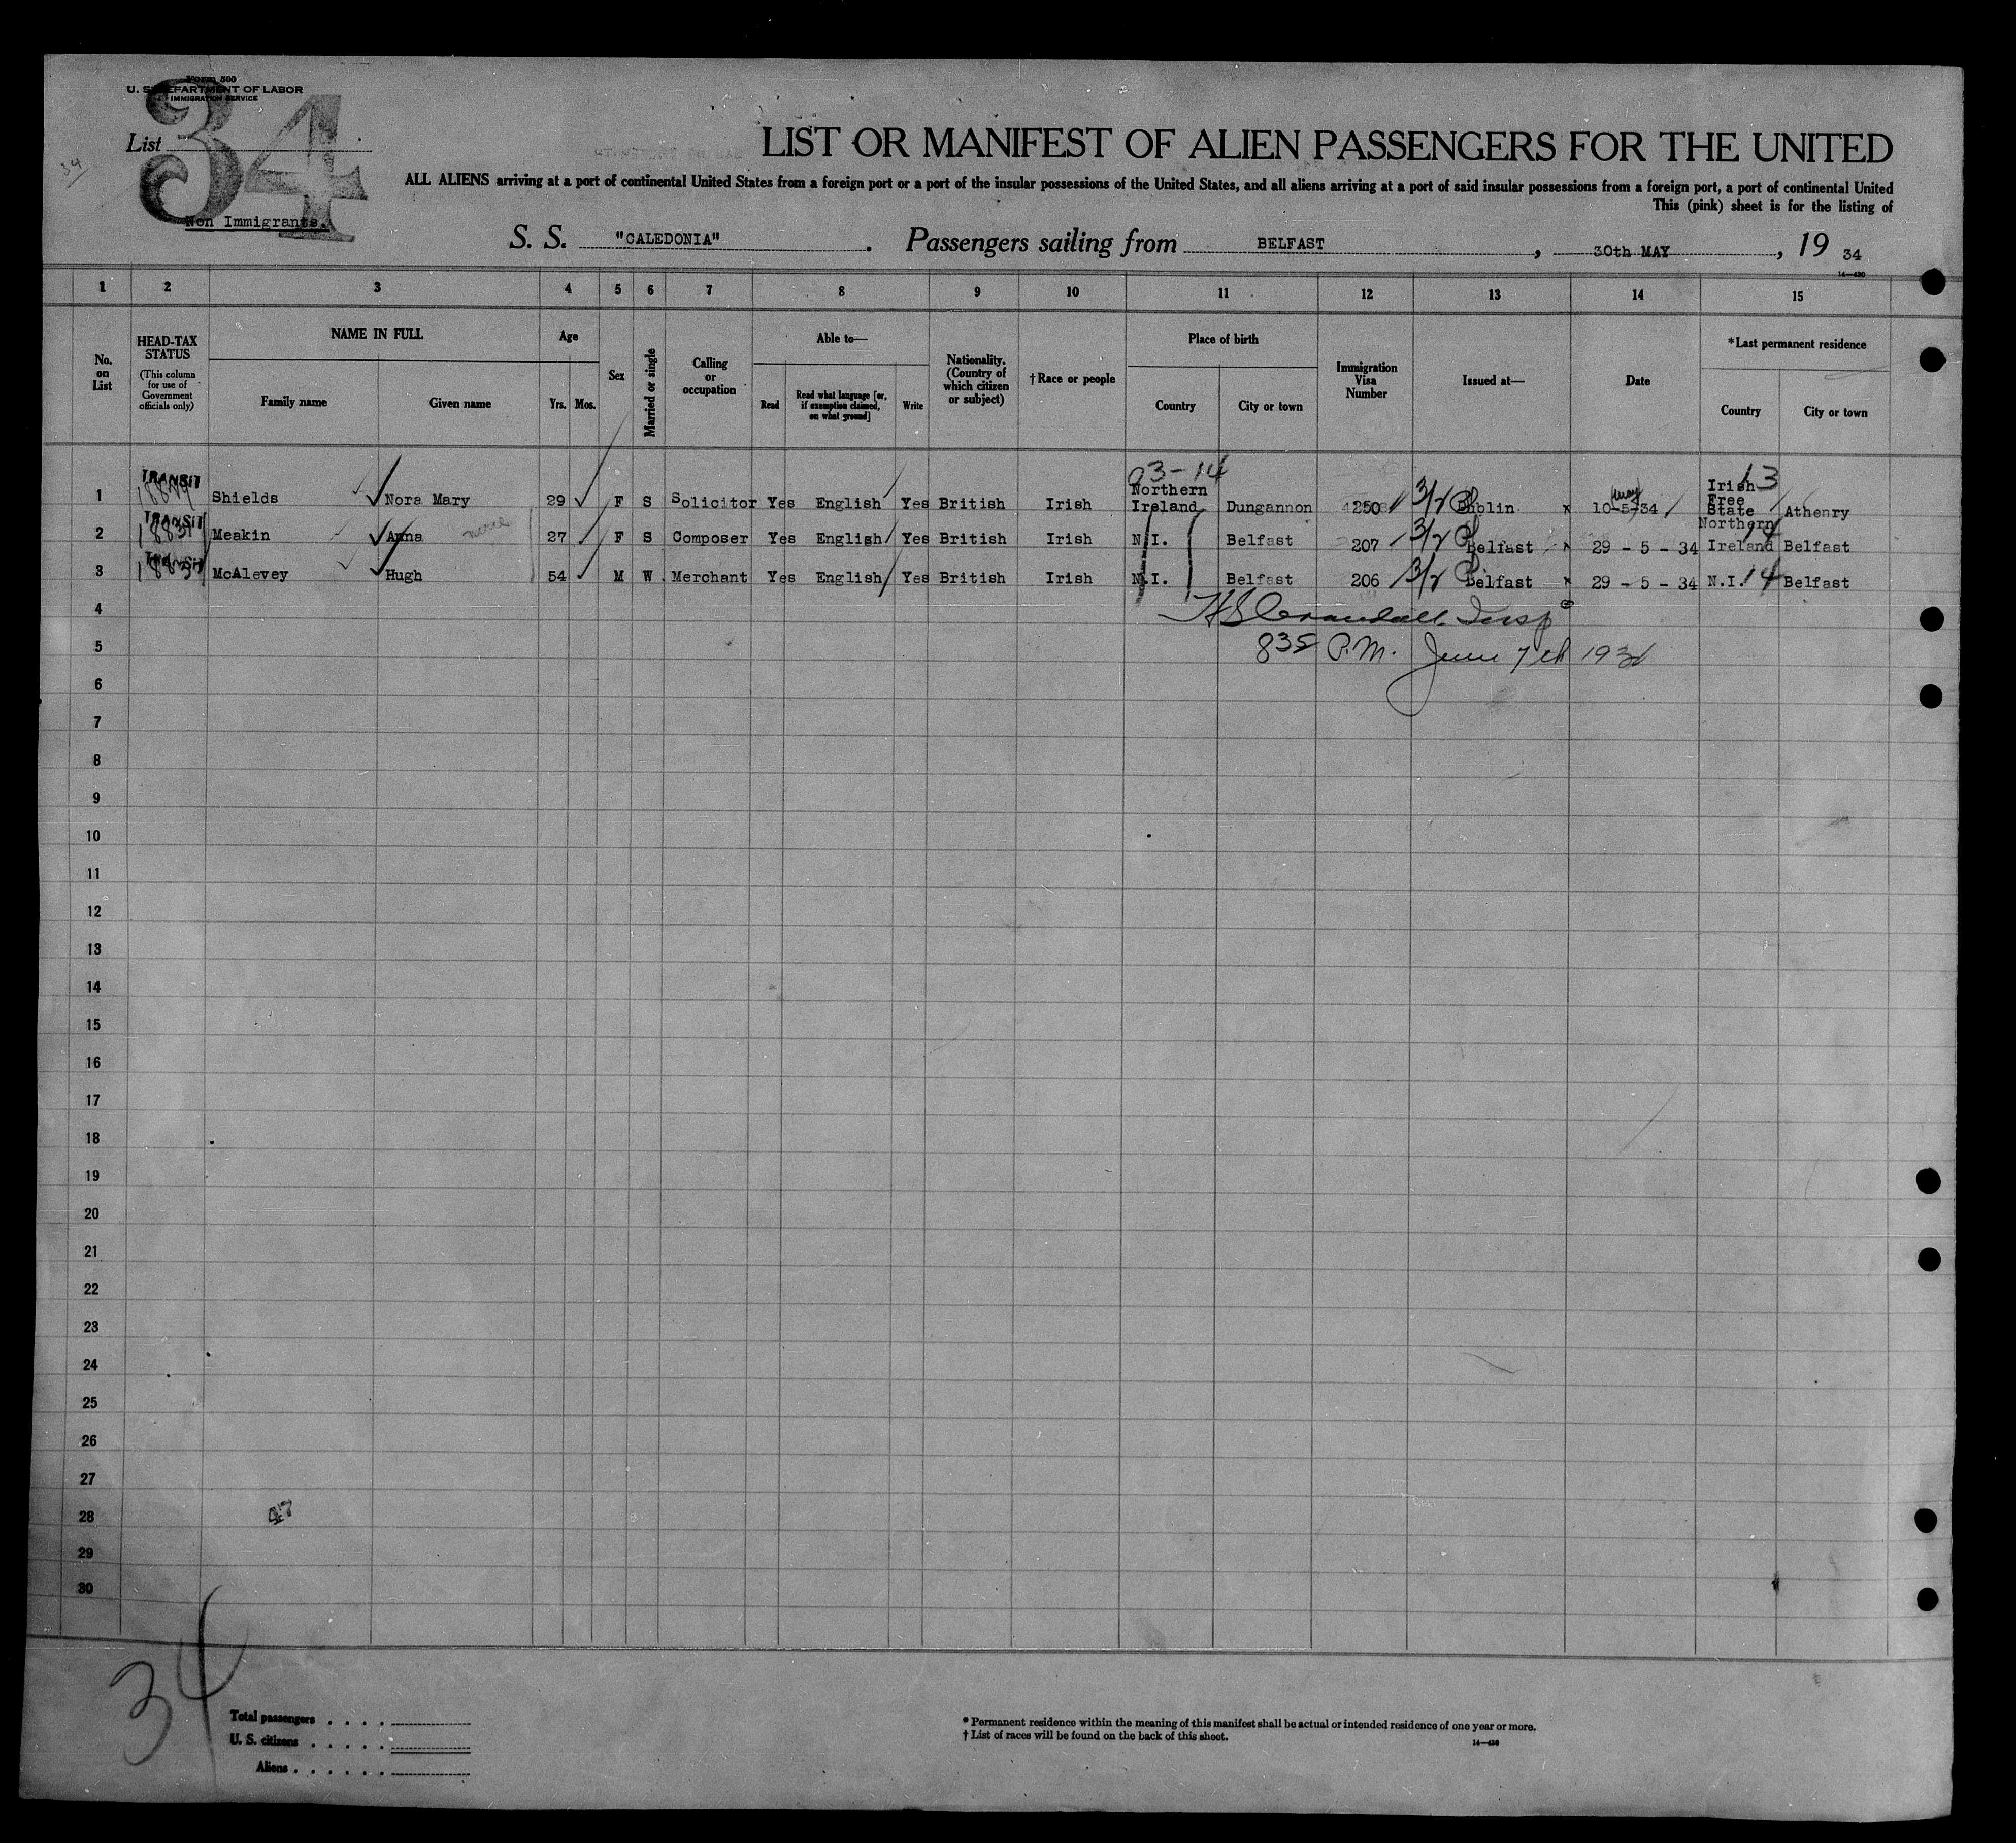 Form 500
U. S. DEPARTMENT OF LABOR
IMMIGRATION SERVICE
List
34
34
Non Immigrants.
LIST OR MANIFEST OF ALIEN PASSENGERS FOR THE UNITED
ALL ALIENS arriving at a port of continental United States from a foreign port or a port of the insular possessions of the United States, and all aliens arriving at a port of said insular possessions from a foreign port, a port of continental United
This (pink) sheet is for the listing of
S. S. "CALEDONIA". Passengers sailing from BELFAST, 30th MAY, 19 34
14—430
1 2 3 4 5 6 7 8 9 10 11 12 13 14 15
No. on List
HEAD-TAX STATUS
(This column for use of Government officials only)
NAME IN FULL
Family name
Given name
Age
Yrs. Mos.
Sex
Married or single
Calling or occupation
Able to—
Read
Read what language [or, if exemption claimed, on what ground]
Write
Nationality. (Country of which citizen or subject)
†Race or people
Place of birth
Country
City or town
Immigration Visa Number
Issued at—
Date
*Last permanent residence
Country
City or town
03-14
1 TRANSIT Shields Nora Mary 29 F S Solicitor Yes English Yes British Irish Northern Ireland Dungannon 1250 3/2 Dublin x 10-5-34 May Irish Free State 13 Athenry
2 TRANSIT Meakin Anna 27 F S Composer Yes English Yes British Irish N.I. Belfast 207 3/2 Belfast x 29 - 5 - 34 Northern Ireland 14 Belfast
3 TRANSIT McAlevey Hugh 54 M W Merchant Yes English Yes British Irish N.I. Belfast 206 3/2 Belfast x 29 - 5 - 34 N.I. 14 Belfast
4 Insp
5 8 35 P.M. June 7th 1934
6
7
8
9
10
11
12
13
14
15
16
17
18
19
20
21
22
23
24
25
26
27
28 47
29
30
34
Total passengers . . . .
U. S. citizens . . . . .
Aliens . . . . . .
* Permanent residence within the meaning of this manifest shall be actual or intended residence of one year or more.
† List of races will be found on the back of this sheet.
14—430